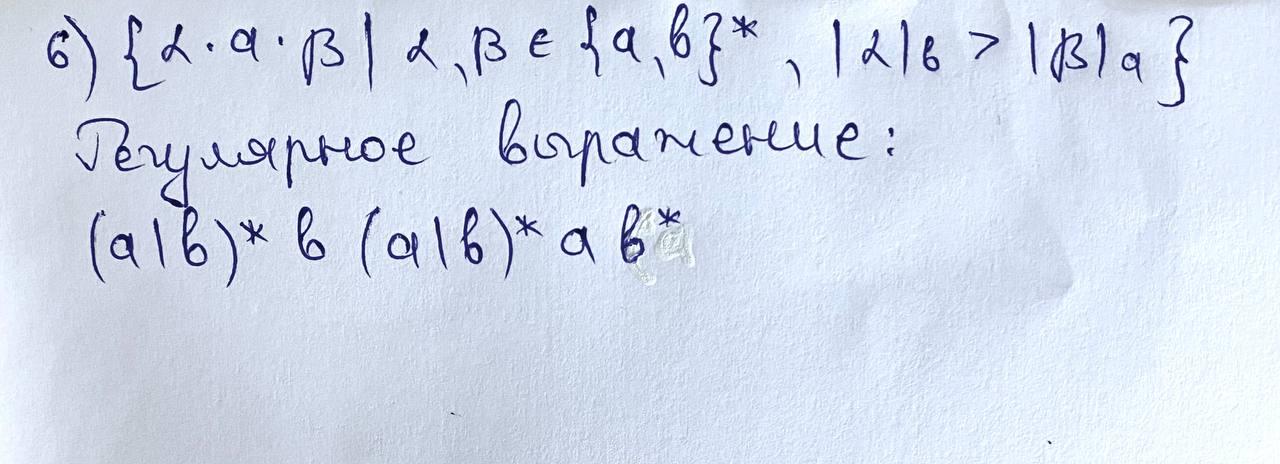 б) {α·a·β | α,β ∈ {a,b}*, |α|b > |β|a}
Регулярное выражение:
(a|b)* b (a|b)* a b*